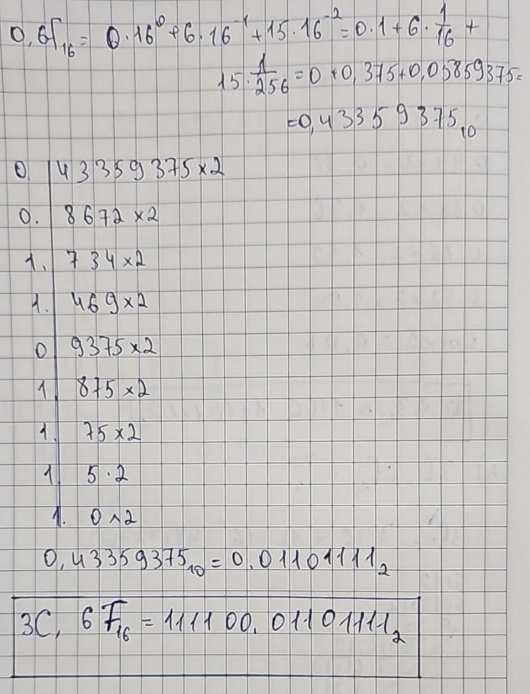 0,6F₁₆ = 0·16⁰ + 6·16⁻¹ + 15·16⁻² = 0·1 + 6·1/16 +
15·1/256 = 0 + 0,375 + 0,05859375 =
= 0,43359375₁₀
0. | 43359375 × 2
0. | 8672 × 2
1. | 734 × 2
1. | 469 × 2
0 | 9375 × 2
1 | 875 × 2
1. | 75 × 2
1 | 5 · 2
1. | 0 × 2
0,43359375₁₀ = 0.01101111₂
3C, 6F₁₆ = 111100.01101111₂